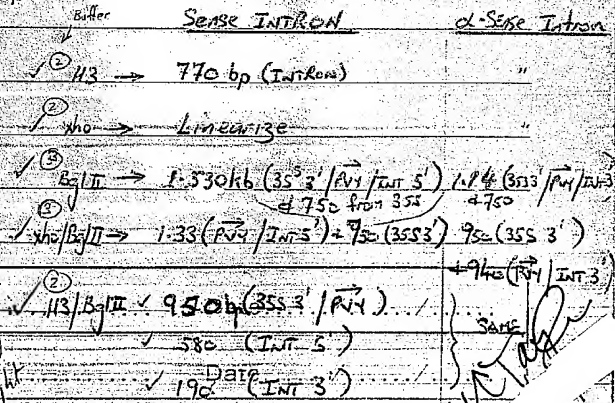 Buffer SENSE INTRON α-Sense Intron
✓ ② H3 → 770 bp (INTRON) "
✓ ② Xho → Linearize "
✓ ③ Bgl II → 1.530kb (35S 3'/PVY/INT 5') 1.14 (35S3'/PVY/INT3')
& 750 from 35S & 750
✓ ③ Xho/Bgl II → 1.33 (PVY/INT 5') + 750 (35S3') 950 (35S 3')
+ 940 (PVY/INT 3')
✓ ② H3/Bgl II ✓ 950bp (35S 3'/PVY)
✓ 580 (INT 5') SAME
Date
✓ 190 (INT 3')